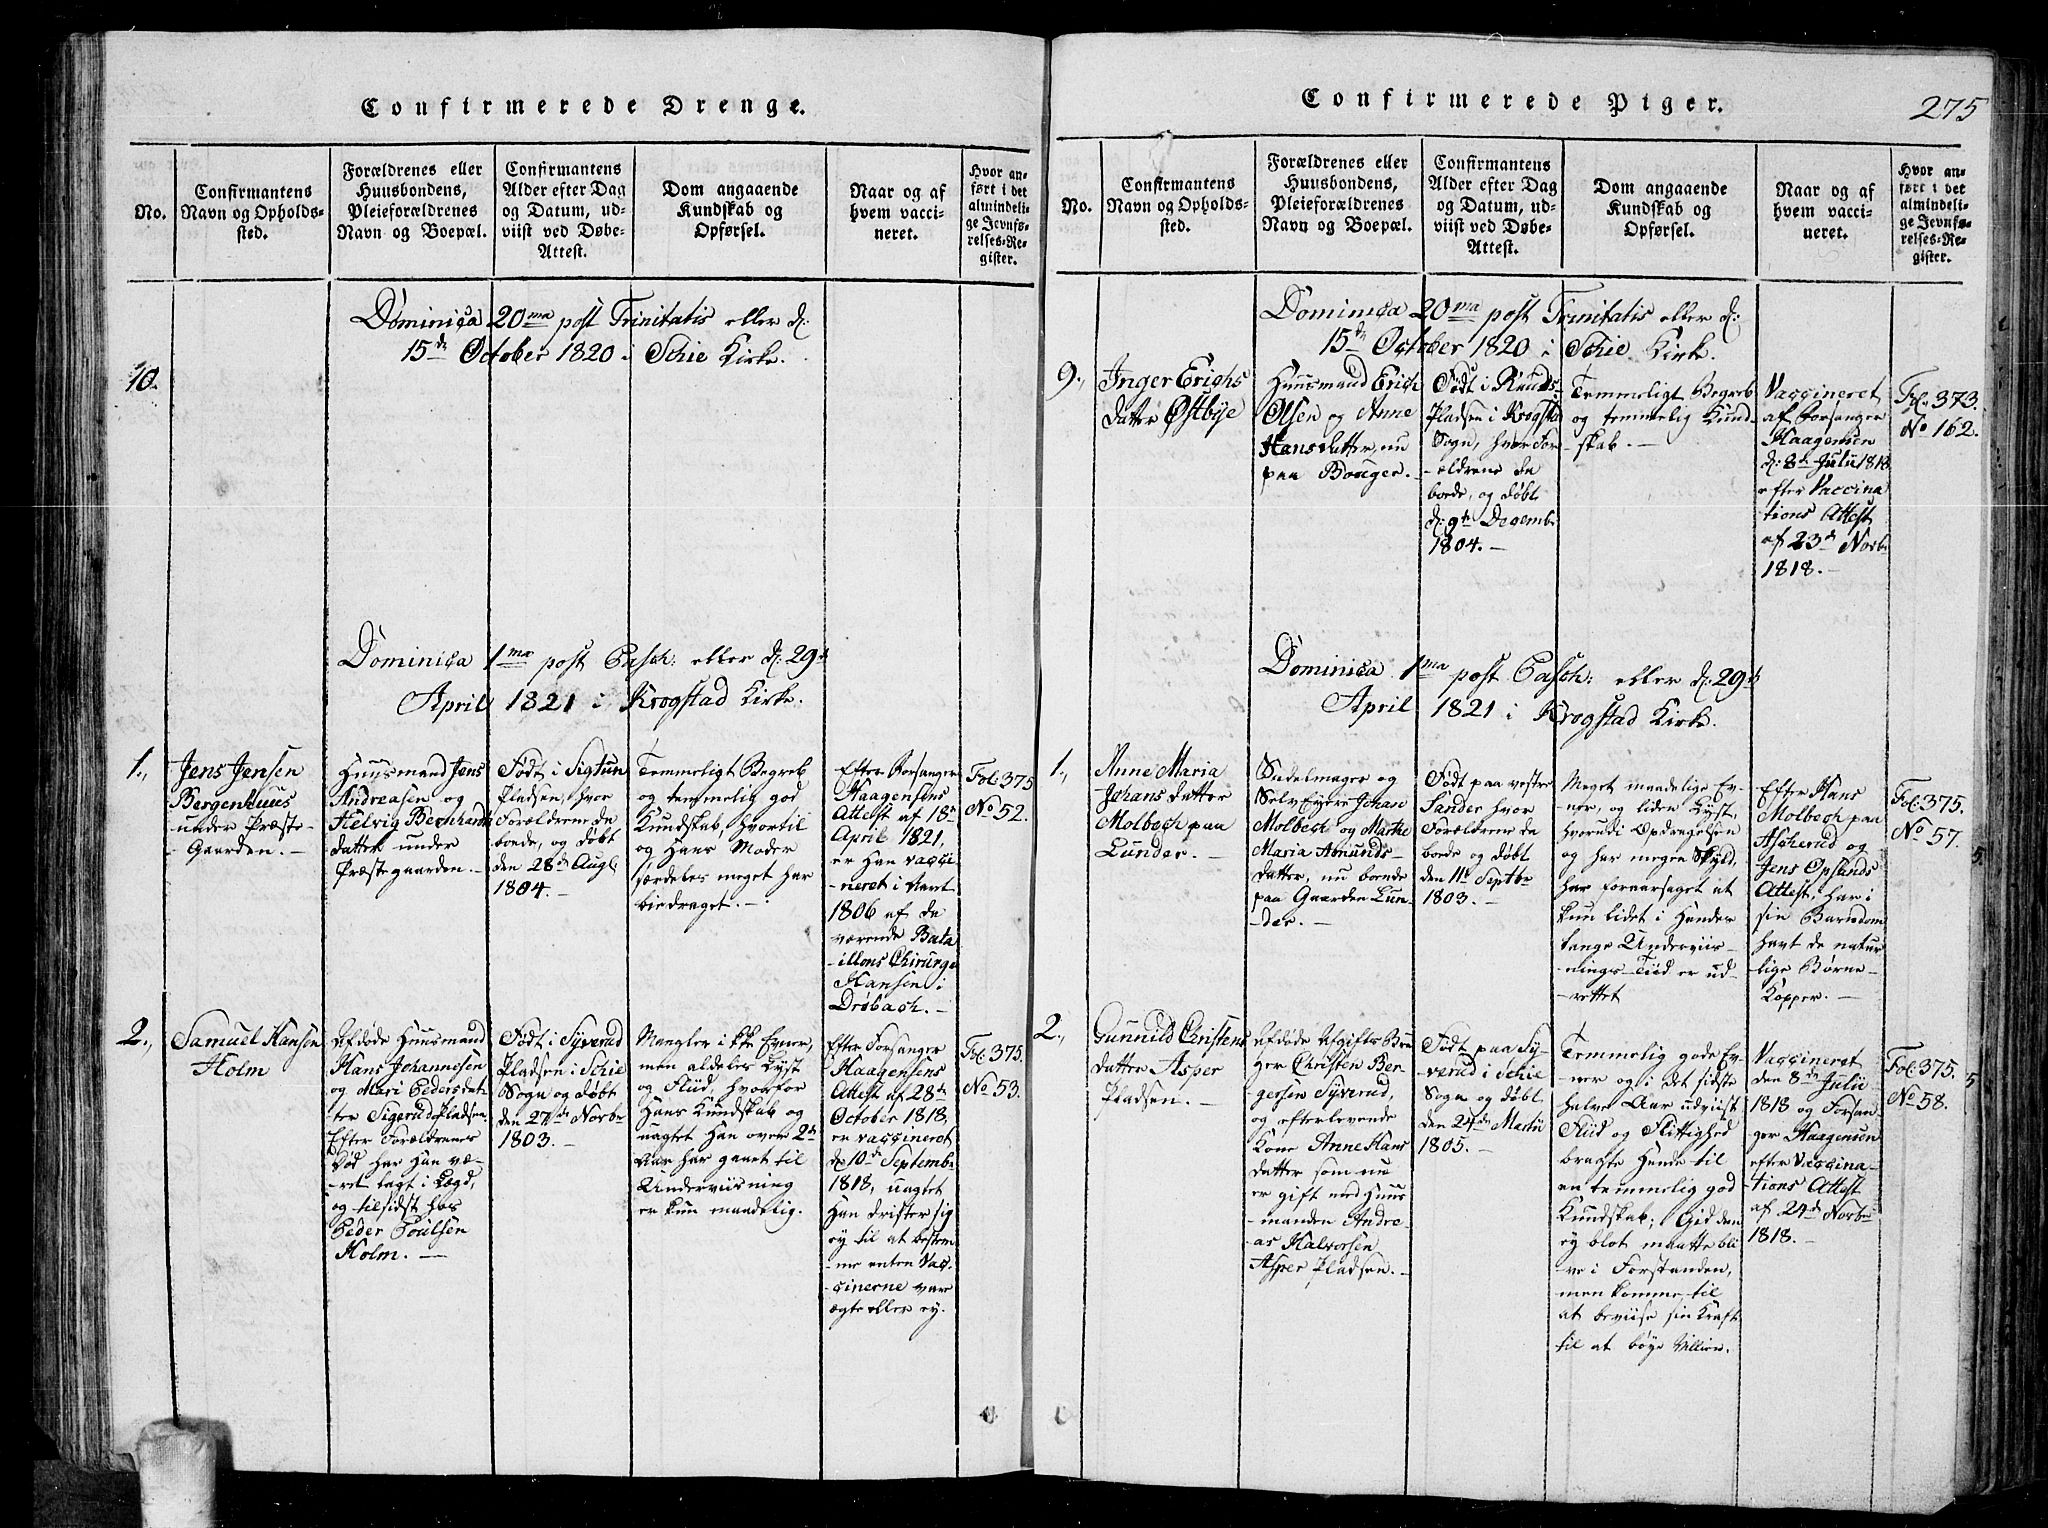 Confirmerede Drenge.
No.
Confirmantens
Navn og Opholds-
sted.
Forældrenes eller
Huusbondens,
Pleieforældrenes
Navn og Boepæl.
Confirmantens
Alder efter Dag
og Datum, ud-
viist ved Døbe-
Attest.
Dom angaaende
Kundskab og
Opførsel.
Naar og af
hvem vacci-
neret.
Hvor an-
ført i det
almindeli-
ge Jevnfø-
relses-Re-
gister.
Dominica 20ma post Trinitatis eller d:
15de October 1820 i Schie Kirke.
10.
Dominica 1ma post Pasch: eller d: 29de
April 1821 i Krogstad Kirke.
1.,
Jens Jensen
Bergenhuus
under Præste-
Gaarden. -
Huusmand Jens
Andreasen og
Helvig Bernhards
datter under
Præstegaarden. -
Født i Sigtun
Pladsen, hvor
Forældrene da
boede, og døbt
den 28de Aug:
1804. -
Temmeligt Begreb
og temmelig god
Kundskab, hvortil
og hans Moder
særdeles meget har
biedraget. -
Efter Forsanger
Haagensens
Attest af 18de
April 1821,
er han vacci
neret i Aaret
1806 af da
værende Bata
illons Chirurgo
Hansen i
Drøbach. -
Fol: 375
No 52.
2.,
Samuel Hansen
Holm
Afdøde Huusmand
Hans Johannesen
og Mari Pedersdat-
ter Sigerudspladsen.
Efter Forældrenes
Død har han væ-
ret lagt i Lægd,
og tilsidst hos
Peder Poulsen
Holm. -
Født i Syverud
Pladsen i Schie
Sogn og døbt
den 27de Novbr
1803. -
Mangler ikke Evner,
men aldeles Lyst
og Fliid, hvorfor
hans Kundskab og
uagtet han over 2de
Aar har gaaet til
Underviisning
er kun maadelig.
Efter Forsanger
Haagensens
Attest af 28de
October 1818,
er vaccineret
d: 10de Septembr
1818, uagtet
han drister sig
ey til at bestem
me enten Vac-
cinerne vare
ægte eller ey.
Fol: 375.
No 53.
Confirmerede Piger.
275
No.
Confirmantens
Navn og Opholds-
sted.
Forældrenes eller
Huusbondens,
Pleieforældrenes
Navn og Boepæl.
Confirmantens
Alder efter Dag
og Datum, ud-
viist ved Døbe-
Attest.
Dom angaaende
Kundskab og
Opførsel.
Naar og af
hvem vacci-
neret.
Hvor an-
ført i det
almindeli-
ge Jevnfø-
relses-Re-
gister.
Dominica 20ma post Trinitatis eller d:
15de October 1820 i Schie Kirke.
9.,
Inger Erichs
datter Østbye
Huusmand Erich
Olsen og Anne
Hansdatter, nu
paa Bonger. -
Født i Runds-
Pladsen i Krogstad
Sogn, hvor For-
ældrene da
boede, og døbt
d: 9de Decembr
1804. -
Temmeligt Begreb
og temmelig Kund-
skab. -
Vaccineret
af Forsanger
Haagensen
d: 8de Julii 1818
efter Vaccina
tions Attest
af 23de Novbr
1818. -
Fol: 373.
No 162.
Dominica 1ma post Pasch: eller d: 29de
April 1821 i Krogstad Kirke.
1.,
Anne Maria
Johans datter
Molbech paa
Lunder. -
Sadelmager og
Selv Eyere Johan
Molbech og Marthe
Maria Amunds-
datter, nu boende
paa Gaarden Lun
der. -
Født paa vestre
Sander hvor
Forældrene da
boede og døbt
den 11te Septbr
1803. -
Meget maadelige Ev-
ner, og liden Lyst,
hvorudi Opdragelsen
og har megen Skyld,
har foraarsaget at
kun lidet i hendes
lange Underviis-
nings-Tiid er ud-
rettet
Efter Hans
Molbech paa
Ascherud og
Jens Opsands
Attest, har i
sin Barndom
havt de natur
lige Børne-
Kopper. -
Fol: 375.
No 57.
2.,
Gunnild Christens
datter Asper
Pladsen. -
Afdøde Afgifts Bru
ger Christen Ber-
gersen Syverud,
og efterlevende
Kone Anne Hans
datter som nu
er gift med Huus
manden Andre-
as Halvorsen
Asper Pladsen. -
Født paa Sy-
verud i Schie
Sogn og døbt
den 24de Martii
1805. -
Temmelig gode Ev-
ner og i det sidste
halve Aar udviist
Fliid og Flittighed
bragte hende til
en temmelig god
Kundskab; Gid den
ey blot maatte bli
ve i Forstanden,
men komme til
at beviise sin Kraft
til at bøye Villien.
Vaccineret
den 8de Julii
1818 og Forsan-
ger Haagensen
efter Vaccina-
tions Attest
af 24de Novbr
1818. -
Fol: 375.
No 58.